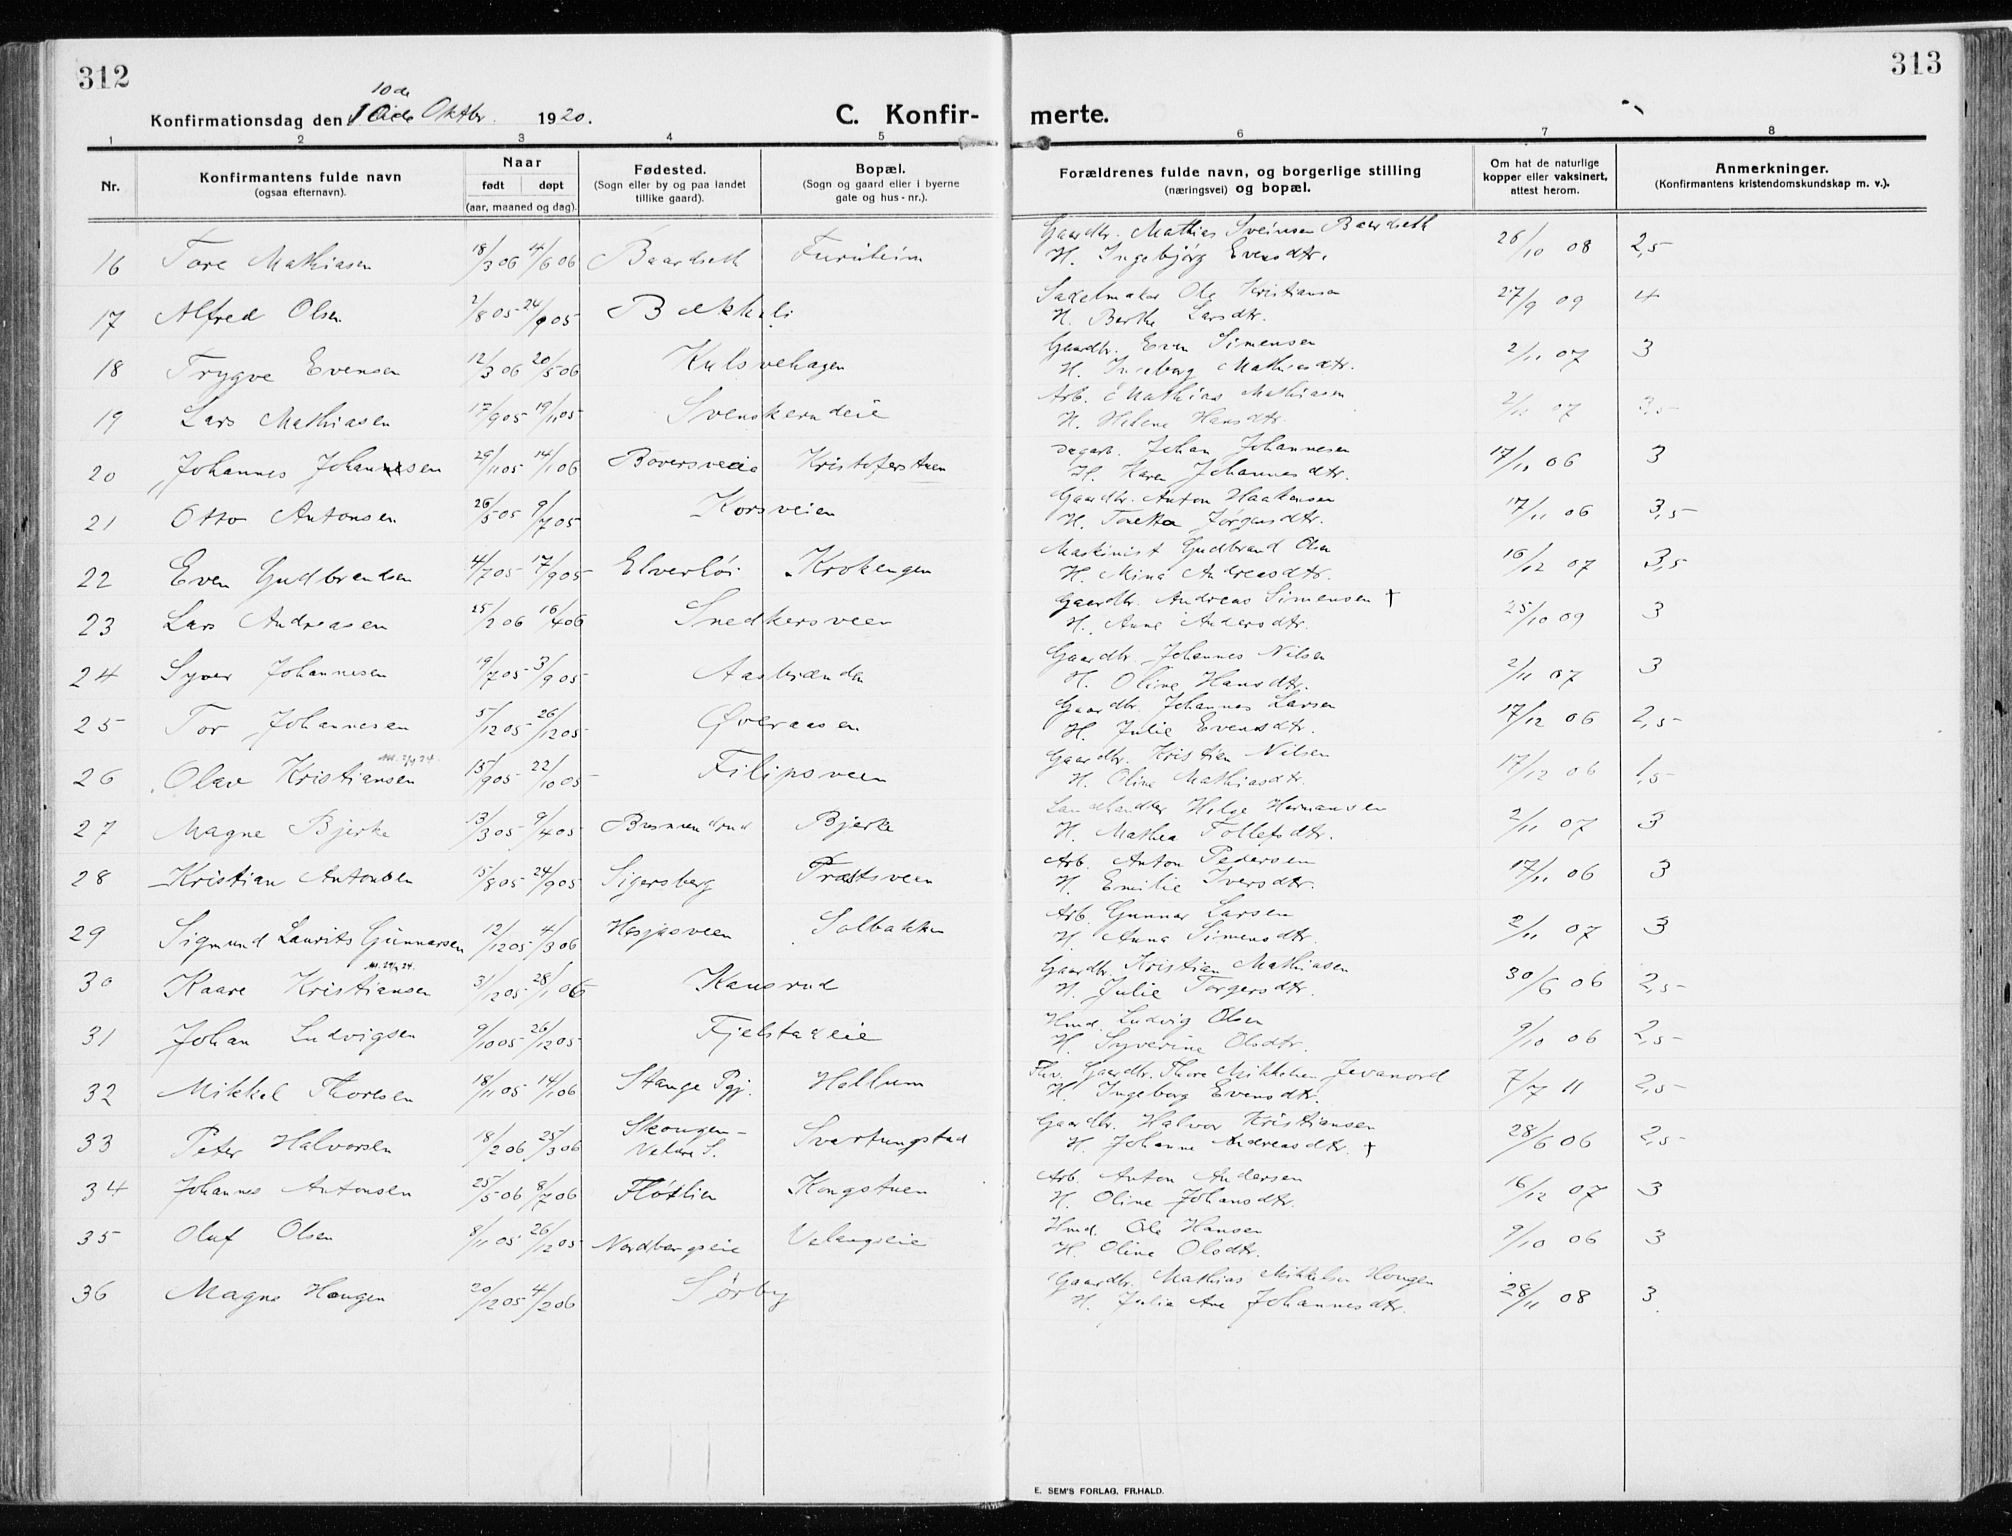 312
313
Konfirmationsdag den 10de Oktbr. 1920.
10de
C. Konfir- merte.
1 2 3 4 5 6 7 8
Nr.
Konfirmantens fulde navn (ogsaa efternavn).
Naar født døpt (aar, maaned og dag).
Fødested. (Sogn eller by og paa landet tillike gaard).
Bopæl. (Sogn og gaard eller i byerne gate og hus-nr.).
Forældrenes fulde navn, og borgerlige stilling (næringsvei) og bopæl.
Om hat de naturlige kopper eller vaksinert, attest herom.
Anmerkninger. (Konfirmantens kristendomskundskap m. v.).
16 Tore Mathiasen 18/3 06 14/6 06 Baardseth Furuheim Gaardbr. Mathias Sveinsen Baardseth 26/10 08 2,5
H. Ingebjørg Evensdtr.
17 Alfred Olsen 2/8 05 24/9 05 Bækkeli Sadelmaker Ole Kristiansen 27/9 09 4
H. Berthe Larsdtr.
18 Trygve Evensen 12/3 06 20/5 06 Kulsvehagen Gaardbr. Even Simensen 2/11 07 3
H. Ingeborg Mathiasdtr.
19 Lars Mathiasen 17/9 05 19/11 05 Svenskerudeie Arb. Mathias Mathiasen 2/11 07 3,5
H. Helene Hansdtr.
20 Johannes Johannesen 29/11 05 14/1 06 Boversveia Kristoferstuen Dagarb. Johan Johannesen 17/11 06 3
H. Karen Johannesdtr.
21 Otto Antonsen 26/5 05 9/7 05 Korsveien Gaardbr. Anton Haakensen 17/11 06 3,5
H. Tonetta Jørgensdtr.
22 Even Gudbrandsen 4/7 05 17/9 05 Elverhøi Krokengen Maskinist Gudbrand Olsen 16/12 07 3,5
H. Mina Andreasdtr.
23 Lars Andreasen 25/2 06 16/4 06 Snedkersveen Gaardbr. Andreas Simensen † 25/10 09 3
H. Anne Andersdtr.
24 Syver Johannesen 19/7 05 3/9 05 Aasbrænden Gaardbr. Johannes Nilsen 2/11 07 3
H. Oline Hansdtr.
25 Tor Johannesen 5/12 05 26/12 05 Øveraasen Gaardbr. Johannes Larsen 17/12 06 2,5
H. Julie Evensdtr.
26 Olav Kristiansen 15/9 05 22/10 05 Filipsveen Gaardbr. Kristian Nilsen 17/12 06 1,5
H. Oline Mathiasdtr.
27 Magne Bjerke 13/3 05 9/4 05 Busmendrud Bjerke Landhandler Helge Hermansen 2/11 07 3
H. Mathea Tollefsdtr.
28 Kristian Antonsen 15/8 05 24/9 05 Sigersberg Præstsveen Arb. Anton Pedersen 17/11 06 3
H. Emilie Iversdtr.
29 Sigmund Laurits Gunnarsen 12/12 05 4/3 06 Hesjesveen Solbakken Arb. Gunnar Larsen 2/11 07 3
H. Anna Simensdtr.
30 Kaare Kristiansen 31/12 05 28/1 06 Kausrud Gaardbr. Kristian Mathiasen 30/6 06 2,5
H. Julie Torgersdtr.
31 Johan Ludvigsen 9/10 05 26/12 05 Fjelstadeie Hmd. Ludvig Olsen 9/10 06 2,5
H. Syverine Olsdtr.
32 Mikkel Thoresen 18/11 05 14/1 06 Stange Pgj. Hellum Fhv. Gaardbr. Thore Mikkelsen Jevanord 7/7 11 2,5
H. Ingeborg Evensdtr.
33 Peter Halvorsen 18/2 06 25/3 06 Skougen- Svartungstad Gaardbr. Halvor Kristiansen 28/6 06 2,5
Veldre S. H. Johanne Andreasdtr. †
34 Johannes Antonsen 25/5 06 8/7 06 Fløtlien Kongstuen Arb. Anton Andersen 16/12 07 3
H. Oline Johansdtr.
35 Oluf Olsen 8/11 05 26/12 05 Nordbergseie Velengseie Hmd. Ole Hansen 9/10 06 3
H. Oline Olsdtr.
36 Magne Hougen 20/12 05 4/2 06 Sørby Gaardbr. Mathias Mikkelsen Hougen 28/11 08 3.
H. Julie Ane Johannesdtr.
E. SEM'S FORLAG. FR.HALD.